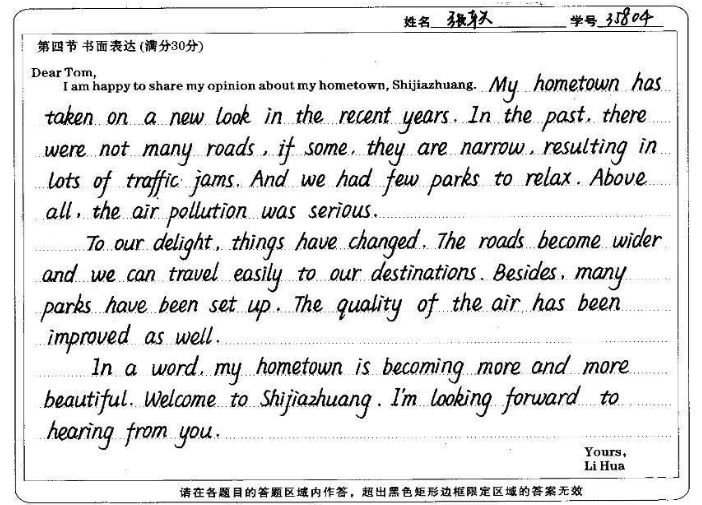 姓名 学号 35804
第四节 书面表达 (满分30分)
Dear Tom,
I am happy to share my opinion about my hometown, Shijiazhuang. My hometown has
taken on a new look in the recent years. In the past, there
were not many roads, if some, they are narrow, resulting in
lots of traffic jams. And we had few parks to relax. Above
all, the air pollution was serious.
To our delight, things have changed. The roads become wider
and we can travel easily to our destinations. Besides, many
parks have been set up. The quality of the air has been
improved as well.
In a word, my hometown is becoming more and more
beautiful. Welcome to Shijiazhuang. I'm looking forward to
hearing from you.
Yours,
Li Hua
请在各题目的答题区域内作答，超出黑色矩形边框限定区域的答案无效